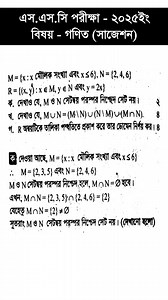 এস.এস.সি পরীক্ষা - ২০২৫ইং
বিষয় - গণিত (সাজেশন)
M = {x : x মৌলিক সংখ্যা এবং x ≤ 6}, N = {2, 4, 6}
R = {(x, y) : x ∈ M, y ∈ N এবং y = 2x}
ক. দেখাও যে, M ও N সেটদ্বয় পরস্পর নিশ্ছেদ সেট নয়। ২
খ. দেখাও যে, M∪N = (M\N) ∪ (N\M) ∪ (M∩N)। ৪
গ. R অন্বয়টিকে তালিকা পদ্ধতিতে প্রকাশ করে তার ডোমেন নির্ণয় কর। ৪
ক দেওয়া আছে, M = {x : x মৌলিক সংখ্যা এবং x ≤ 6}
∴ M = {2, 3, 5} এবং N = {2, 4, 6}
M ও N সেটদ্বয় পরস্পর নিশ্ছেদ হলে, M∩N = Ø হবে।
এখন, M∩N = {2, 3, 5} ∩ {2, 4, 6} = {2}
যেহেতু M∩N = {2} ≠ Ø
সুতরাং M ও N সেটদ্বয় পরস্পর নিশ্ছেদ সেট নয়। (দেখানো হলো)